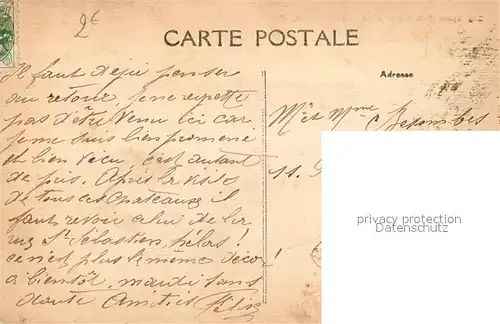 2€
CARTE POSTALE
Adresse
Il faut déjà penser
au retour, je ne regrette
pas d'être venu ici car
je me suis bien promené
et bien vécu, c'est autant
de pris. Après la visite
de tous ces chateaux il
faut revoir celui de la
rue St Sébastien, hélas!
ce n'est plus le même décor!
a bientôt, mardi sans
doute Amitiés
Mr et Mme
privacy protection
www.ansichtskarten-center.de